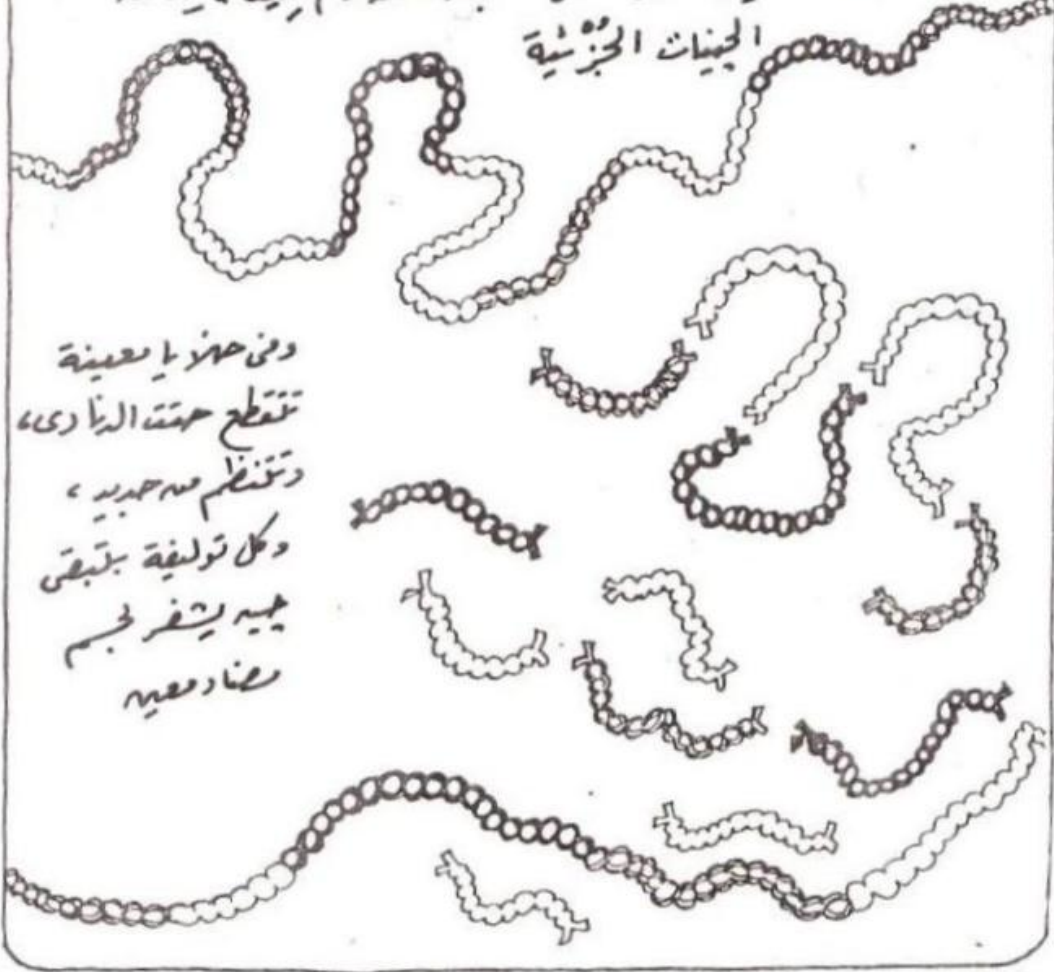 الجينات الجُزْئية
وفى خلايا معينة
تتقطع حتت الدنا دى،
وتتنظم من جديد،
وكل توليفة بتبقى
چين يشفر لجسم
مضاد معين